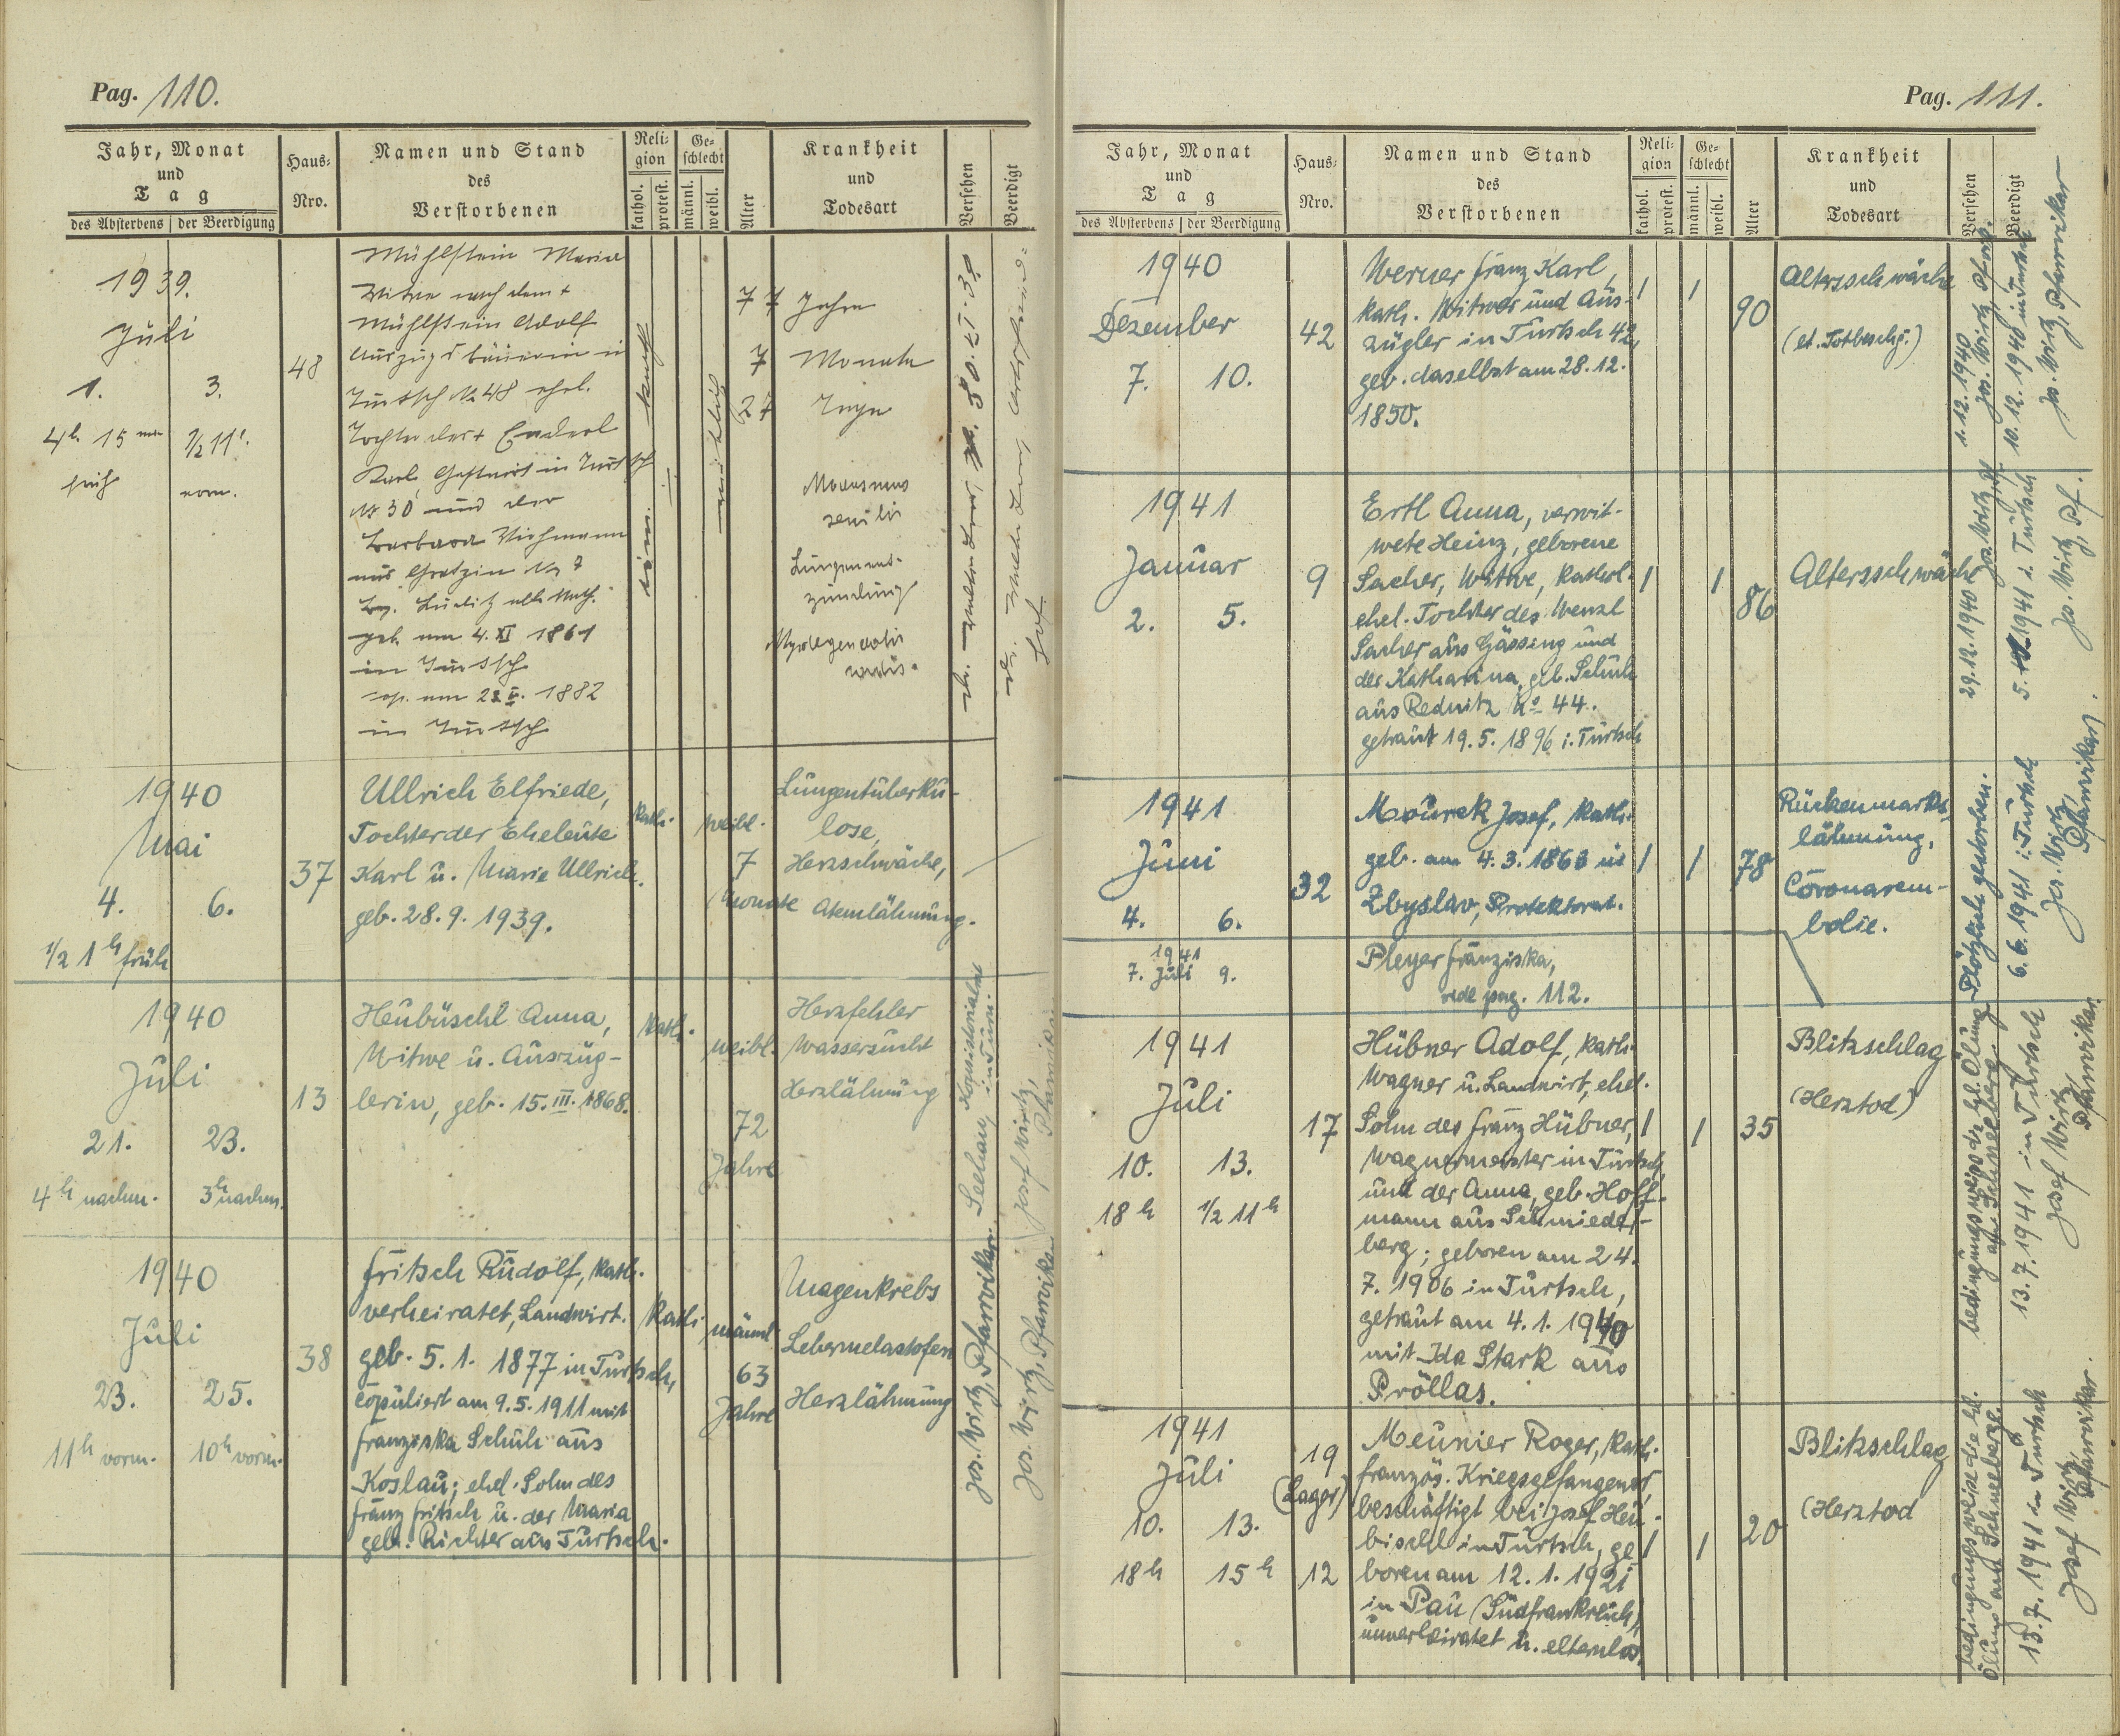 Pag. 110.
Jahr, Monat
und
Tag
des Absterbens
der Beerdigung
Haus-
Nro.
Namen und Stand
des
Verstorbenen
Reli-
gion
kathol.
protest.
Ge-
schlecht
männl.
weibl.
Alter
Krankheit
und
Todesart
Versehen
Beerdigt
1939.
Juli
1. 3.
4h 15
früh
1/2 11
vorm.
48
Mühlstein Maria
Witwe nach dem +
Mühlstein Adolf
Auszugsbäuerin in
Turtsch No 48 ehel.
Tochter des +
Karl, Gastwirt in Turtsch
No 30 und der
Barbara
aus
Bez. Luditz
geb. am 4. XI 1861
in Turtsch
cop. am 1882
in Turtsch
77 Jahre
7 Monate
27 Tage
Marasmus
senilis
Lungenent-
zündung
Myodegeneratio
cordis.
1940
Mai
4. 6.
1/2 1h früh
37
Ullrich Elfriede,
Tochter der Eheleute
Karl u. Marie Ullrich.
geb. 28. 9. 1939.
kath.
weibl.
7
Monate
Lungentuberku-
lose,
Herzschwäche,
Atemlähmung.
1940
Juli
21. 23.
4h nachm. 3h nachm.
13
Heubüschl Anna,
Witwe u. Auszüg-
lerin, geb. 15. III. 1868.
kath.
weibl.
72
Jahre
Herzfehler
Wassersucht
Herzlähmung
Josef Wirtz,
Pfarrvikar
1940
Juli
23. 25.
11h vorm. 10h vorm.
38
Fritsch Rudolf, kath.
verheiratet, Landwirt.
geb. 5. 1. 1877 in Turtsch,
copuliert am 9. 5. 1911 mit
Franziska Schuh aus
Koslau; ehel. Sohn des
Franz Fritsch u. der Maria
geb. Richter aus Turtsch.
kath.
männl.
63
Jahre
Magenkrebs
Herzlähmung
Jos. Wirtz, Pfarrvikar.
Jos. Wirtz, Pfarrvikar
Pag. 111.
Jahr, Monat
und
Tag
des Absterbens
der Beerdigung
Haus-
Nro.
Namen und Stand
des
Verstorbenen
Reli-
gion
kathol.
protest.
Ge-
schlecht
männl.
weibl.
Alter
Krankheit
und
Todesart
Versehen
Beerdigt
1940
Dezember
7. 10.
42
Werner Franz Karl,
kath. Witwer und Aus-
zügler in Turtsch 42,
geb. daselbst am 28. 12.
1850.
90
Altersschwäche
(lt. Totbeschg.)
1. 12. 1940
10. 12. 1940 in Turtsch
Jos. Wirtz, Pfarrvikar
1941
Januar
2. 5.
9
Ertl Anna, verwit-
wete Heinz, geborene
Sacher, Witwe,
ehel. Tochter des Wenzl
Sacher aus Gässing und
der Katharina, geb. Schuh
aus Rednitz No 44.
getraut 19. 5. 1896 i. Turtsch
86
Altersschwäche
29. 12. 1940 Jos. Wirtz Pf.
5. 1. 1941 i. Turtsch
Jos. Wirtz, Pf.
1941
Juni
4. 6.
32
Mourek Josef, kath.
geb. am 4. 3. 1863 in
Zbyslav, Protektorat.
78
Rückenmarks-
lähmung,
Coronarem-
bolie.
Plötzlich gestorben.
6. 6. 1941 i. Turtsch
Jos. Wirtz,
Pfarrvikar.
1941
7. Juli 9.
Pleyer Franziska,
vide pag. 112.
1941
Juli
10. 13.
18h 1/2 11h
17
Hübner Adolf, kath.
Wagner u. Landwirt, ehel.
Sohn des Franz Hübner,
Wagnermeister in Turtsch
und der Anna, geb. Hoff-
mann aus Schmiede-
berg; geboren am 24.
7. 1906 in Turtsch,
getraut am 4. 1. 1940
mit Ida Stark aus
Pröllas.
35
Blitzschlag
(Herztod)
bedingungsweise die hl. Ölung
am Schneeberg.
13. 7. 1941 in Turtsch
Josef Wirtz
Pfarrvikar.
1941
Juli
10. 13.
18h 15h
19
(Lager)
12
Meunier Roger, kath.
französ. Kriegsgefangener,
beschäftigt bei Josef Heu-
bischl in Turtsch, ge-
boren am 12. 1. 1921
in Pau (Südfrankreich),
unverheiratet u. elternlos.
20
Blitzschlag
(Herztod
bedingungsweise die hl.
Ölung am Schneeberge.
13. 7. 1941 in Turtsch
Josef Wirtz
Pfarrvikar.